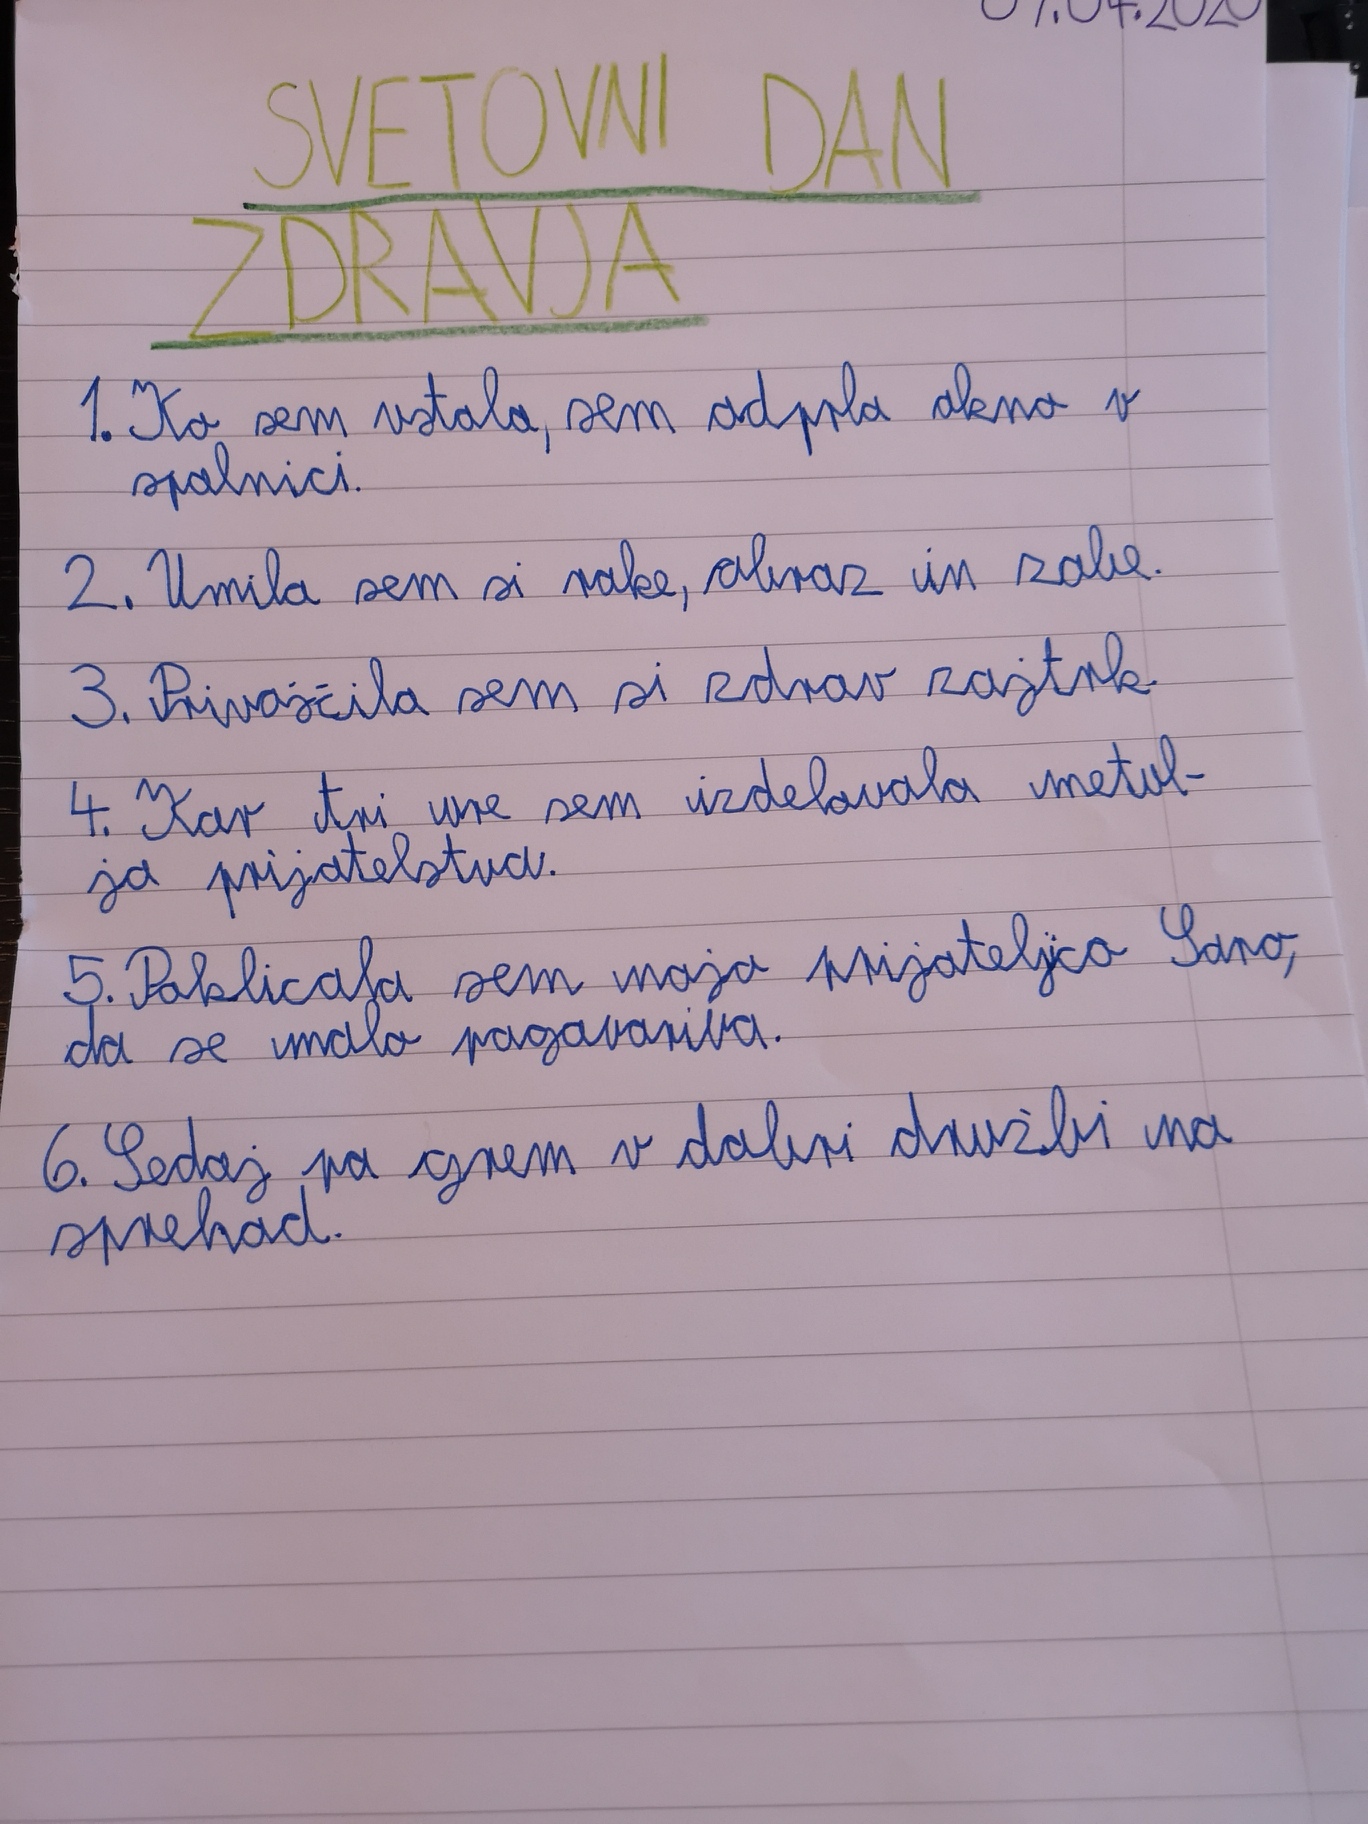 07.04.2020
SVETOVNI DAN
ZDRAVJA
1. Ko sem vstala, sem odprla okno v
spalnici.
2. Umila sem si roke, obraz in zobe.
3. Privoščila sem si zdrav zajtrk.
4. Kar tri ure sem izdelovala metul-
ja prijatelstva.
5. Poklicala sem mojo prijateljico Saro,
da se malo pogovoriva.
6. Sedaj pa grem v dobri družbi na
sprehod.